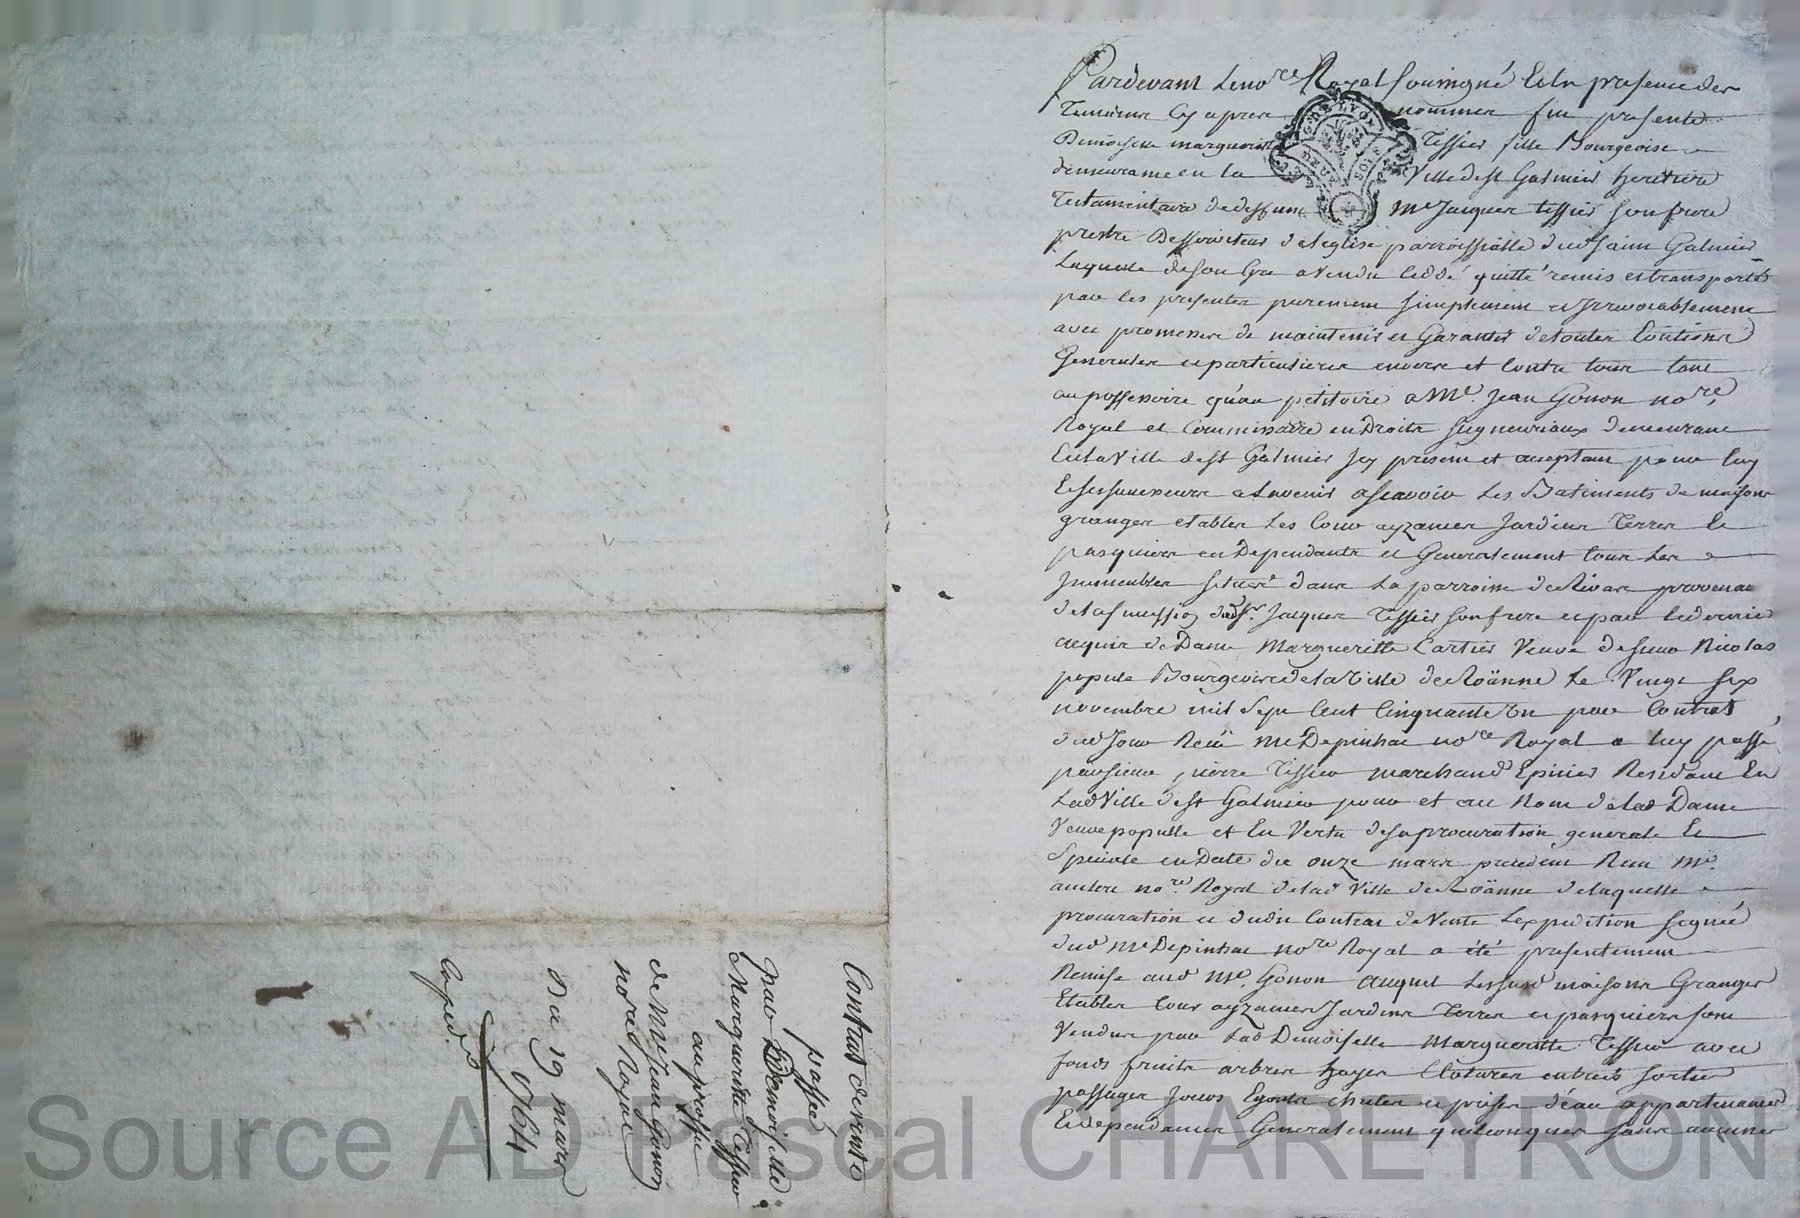 Pardevant Le no.re Royal soussigné Et En presence des
Temoins Cy apres nommes fut presente
Demoiselle marguerite Tessier fille Bourgeoise
demeurante en la Ville de st Galmier heritiere
Testamentaire de deffunt Me Jacques tessier son frere
prestre Desserviteur de leglise parroissialle dud saint Galmier
Laquelle de son Gré a Vendu Ceddé quitté remis et transporté
par les presentes purement simplement et Irrevocablement
avec promesse de maintenir et Garantir de toutes Evictions
Generales et particulieres envers et Contre tous tant
au possessoire qu'au petitoire a Me. Jean Gonon no.re
Royal et Commissaire en Droits seigneuriaux demeurant
En la Ville de st Galmier Icy present et acceptant pour luy
Et ses successeurs a Lavenir a scavoir Les Batiments de maisons
granges etables Les Cour ayzances Jardins Terres Et
pasquiers en Dependants et Generalement tous Les
Immeubles situés dans La parroisse de Rivas provenant
de la succession dud sr. Jacques Tessier son frere et par le dernier
acquis de Dame Margueritte Cartier Veuve de sieur Nicolas
popule Bourgeois de la Ville de Roänne Le Vingt six
novembre mil sept Cent Cinquante Un par Contrat
dud Jour Reçu Me Depinhac no.re Royal a luy passé
par sieur pierre Tessier marchand Epicier Residant En
Lad Ville de st Galmier pour et au Nom de lad Dame
Veuve populle et En Vertu de sa procuration generale Et
Speciale en Date du onze mars precedent Recu Me.
no.re Royal de lad Ville de Roänne de laquelle
procuration et dudit Contrat de Vente Lexpedition signée
dud Me Depinhac no.re Royal a été presentement
Remise aud Me. Gonon auquel Lessusd maisons Granges
Etables Cour ayzances Jardins Terres et pasquiers sont
Vendus par Lad Demoiselle Margueritte Tessier avec
fonds fruits arbres hayes Clotures entrées sorties
passages Jours Egouts chutes et prises d'eau appartenances
Et dependances Generalement quelconques sans aucunes
Contrat de vente
passée
par Demoiselle
Marguerite Tessier
au proffit
de Me Jean Gonon
no.re Royal
Du 19 mars
1764
Exped.
Source AD Pascal CHAREYRON
G. DE LYON
DEUX SOLS